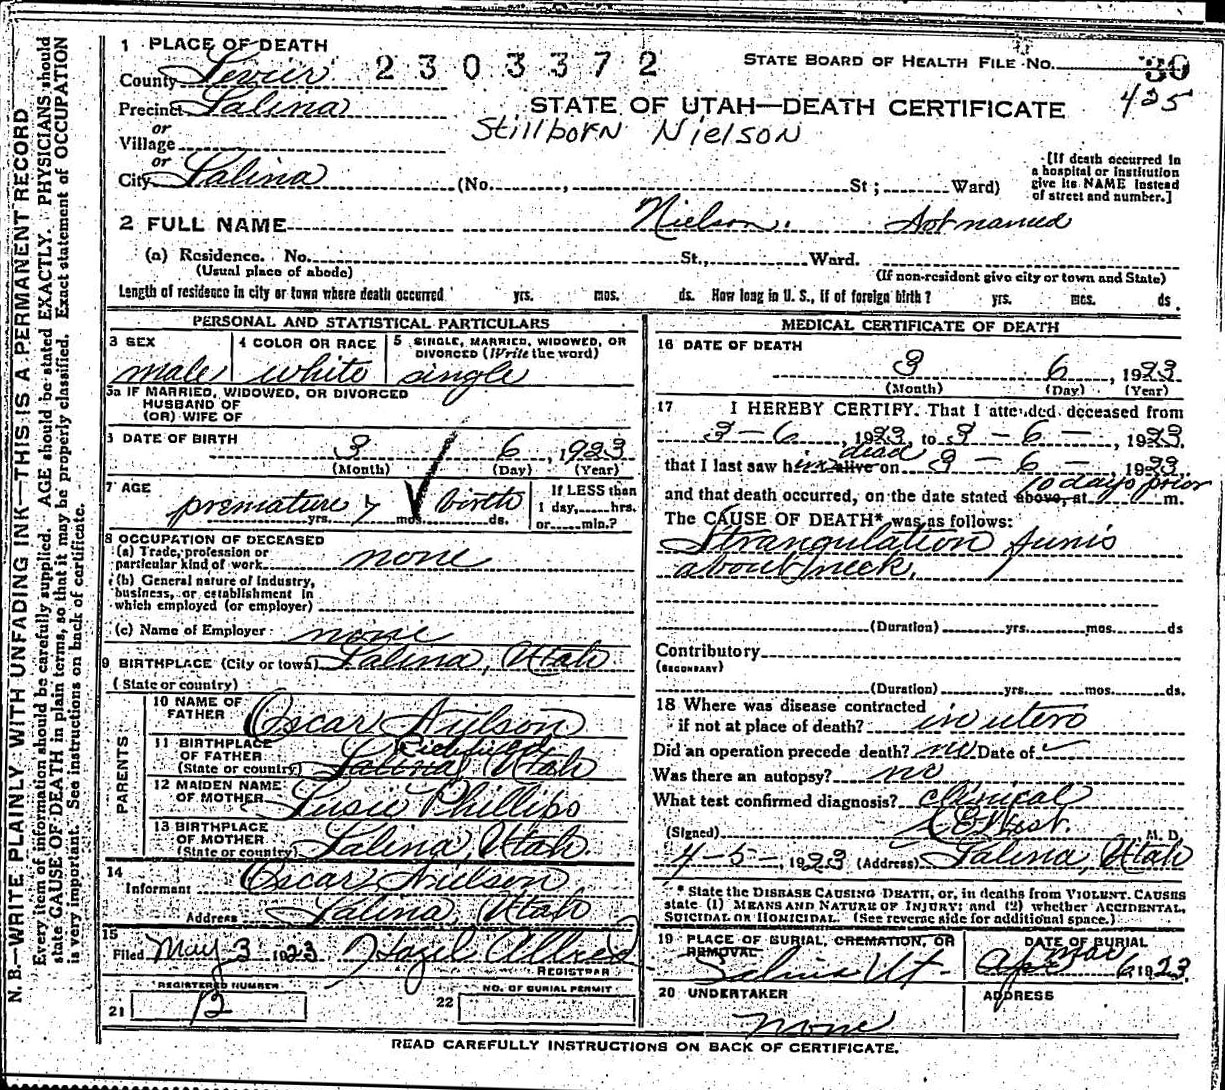 1 PLACE OF DEATH
County Sevier
2303372
STATE BOARD OF HEALTH FILE NO. 30
425
Precinct Salina
STATE OF UTAH—DEATH CERTIFICATE
or
Stillborn Nielson
Village
or
City Salina (No. , St; Ward)
[If death occurred in
a hospital or institution
give its NAME instead
of street and number.]
2 FULL NAME Nielson. Not named
(a) Residence. No. St., Ward.
(Usual place of abode) (If non-resident give city or town and State)
Length of residence in city or town where death occurred yrs. mos. ds. How long in U. S., if of foreign birth? yrs. mos. ds.
PERSONAL AND STATISTICAL PARTICULARS
3 SEX
male
4 COLOR OR RACE
white
5 SINGLE, MARRIED, WIDOWED, OR
DIVORCED (Write the word)
single
5a IF MARRIED, WIDOWED, OR DIVORCED
HUSBAND OF
(OR) WIFE OF
6 DATE OF BIRTH
3 6, 1923
(Month) (Day) (Year)
7 AGE
premature 7 birth
yrs. mos. ds.
If LESS than
1 day, hrs.
or min.?
8 OCCUPATION OF DECEASED
(a) Trade, profession or
particular kind of work none
(b) General nature of industry,
business, or establishment in
which employed (or employer)
(c) Name of Employer none
9 BIRTHPLACE (City or town) Salina, Utah
(State or country)
PARENTS
10 NAME OF
FATHER Oscar Nielson
11 BIRTHPLACE
OF FATHER Richfield
(State or country) Salina, Utah
12 MAIDEN NAME
OF MOTHER Susie Phillips
13 BIRTHPLACE
OF MOTHER
(State or country) Salina, Utah.
14
Informant Oscar Nielson
Address Salina, Utah
15
Filed May 3 1923 Hazel Allred
REGISTRAR
REGISTERED NUMBER
21 12
NO. OF BURIAL PERMIT
22
MEDICAL CERTIFICATE OF DEATH
16 DATE OF DEATH
3 6, 1923
(Month) (Day) (Year)
17 I HEREBY CERTIFY. That I attended deceased from
3-6, 1923, to 3-6-, 1923.
dead
that I last saw him alive on 3-6-, 1923.
10 days prior
and that death occurred, on the date stated above, at m.
The CAUSE OF DEATH* was as follows:
Strangulation funis
about neck.
(Duration) yrs. mos. ds
Contributory
(SECONDARY)
(Duration) yrs. mos. ds.
18 Where was disease contracted
if not at place of death? in utero
Did an operation precede death? no Date of
Was there an autopsy? no
What test confirmed diagnosis? clinical
(Signed) West. M. D.
4-5-, 1923 (Address) Salina, Utah
* State the DISEASE CAUSING DEATH, or, in deaths from VIOLENT CAUSES
state (1) MEANS AND NATURE OF INJURY; and (2) whether ACCIDENTAL,
SUICIDAL OR HOMICIDAL. (See reverse side for additional space.)
19 PLACE OF BURIAL, CREMATION, OR
REMOVAL
Salina Ut.
DATE OF BURIAL
Mar
Apr 6, 1923
20 UNDERTAKER
none
ADDRESS
READ CAREFULLY INSTRUCTIONS ON BACK OF CERTIFICATE.
N. B.—WRITE PLAINLY WITH UNFADING INK—THIS IS A PERMANENT RECORD
Every item of information should be carefully supplied. AGE should be stated EXACTLY. PHYSICIANS should
state CAUSE OF DEATH in plain terms, so that it may be properly classified. Exact statement of OCCUPATION
is very important. See instructions on back of certificate.